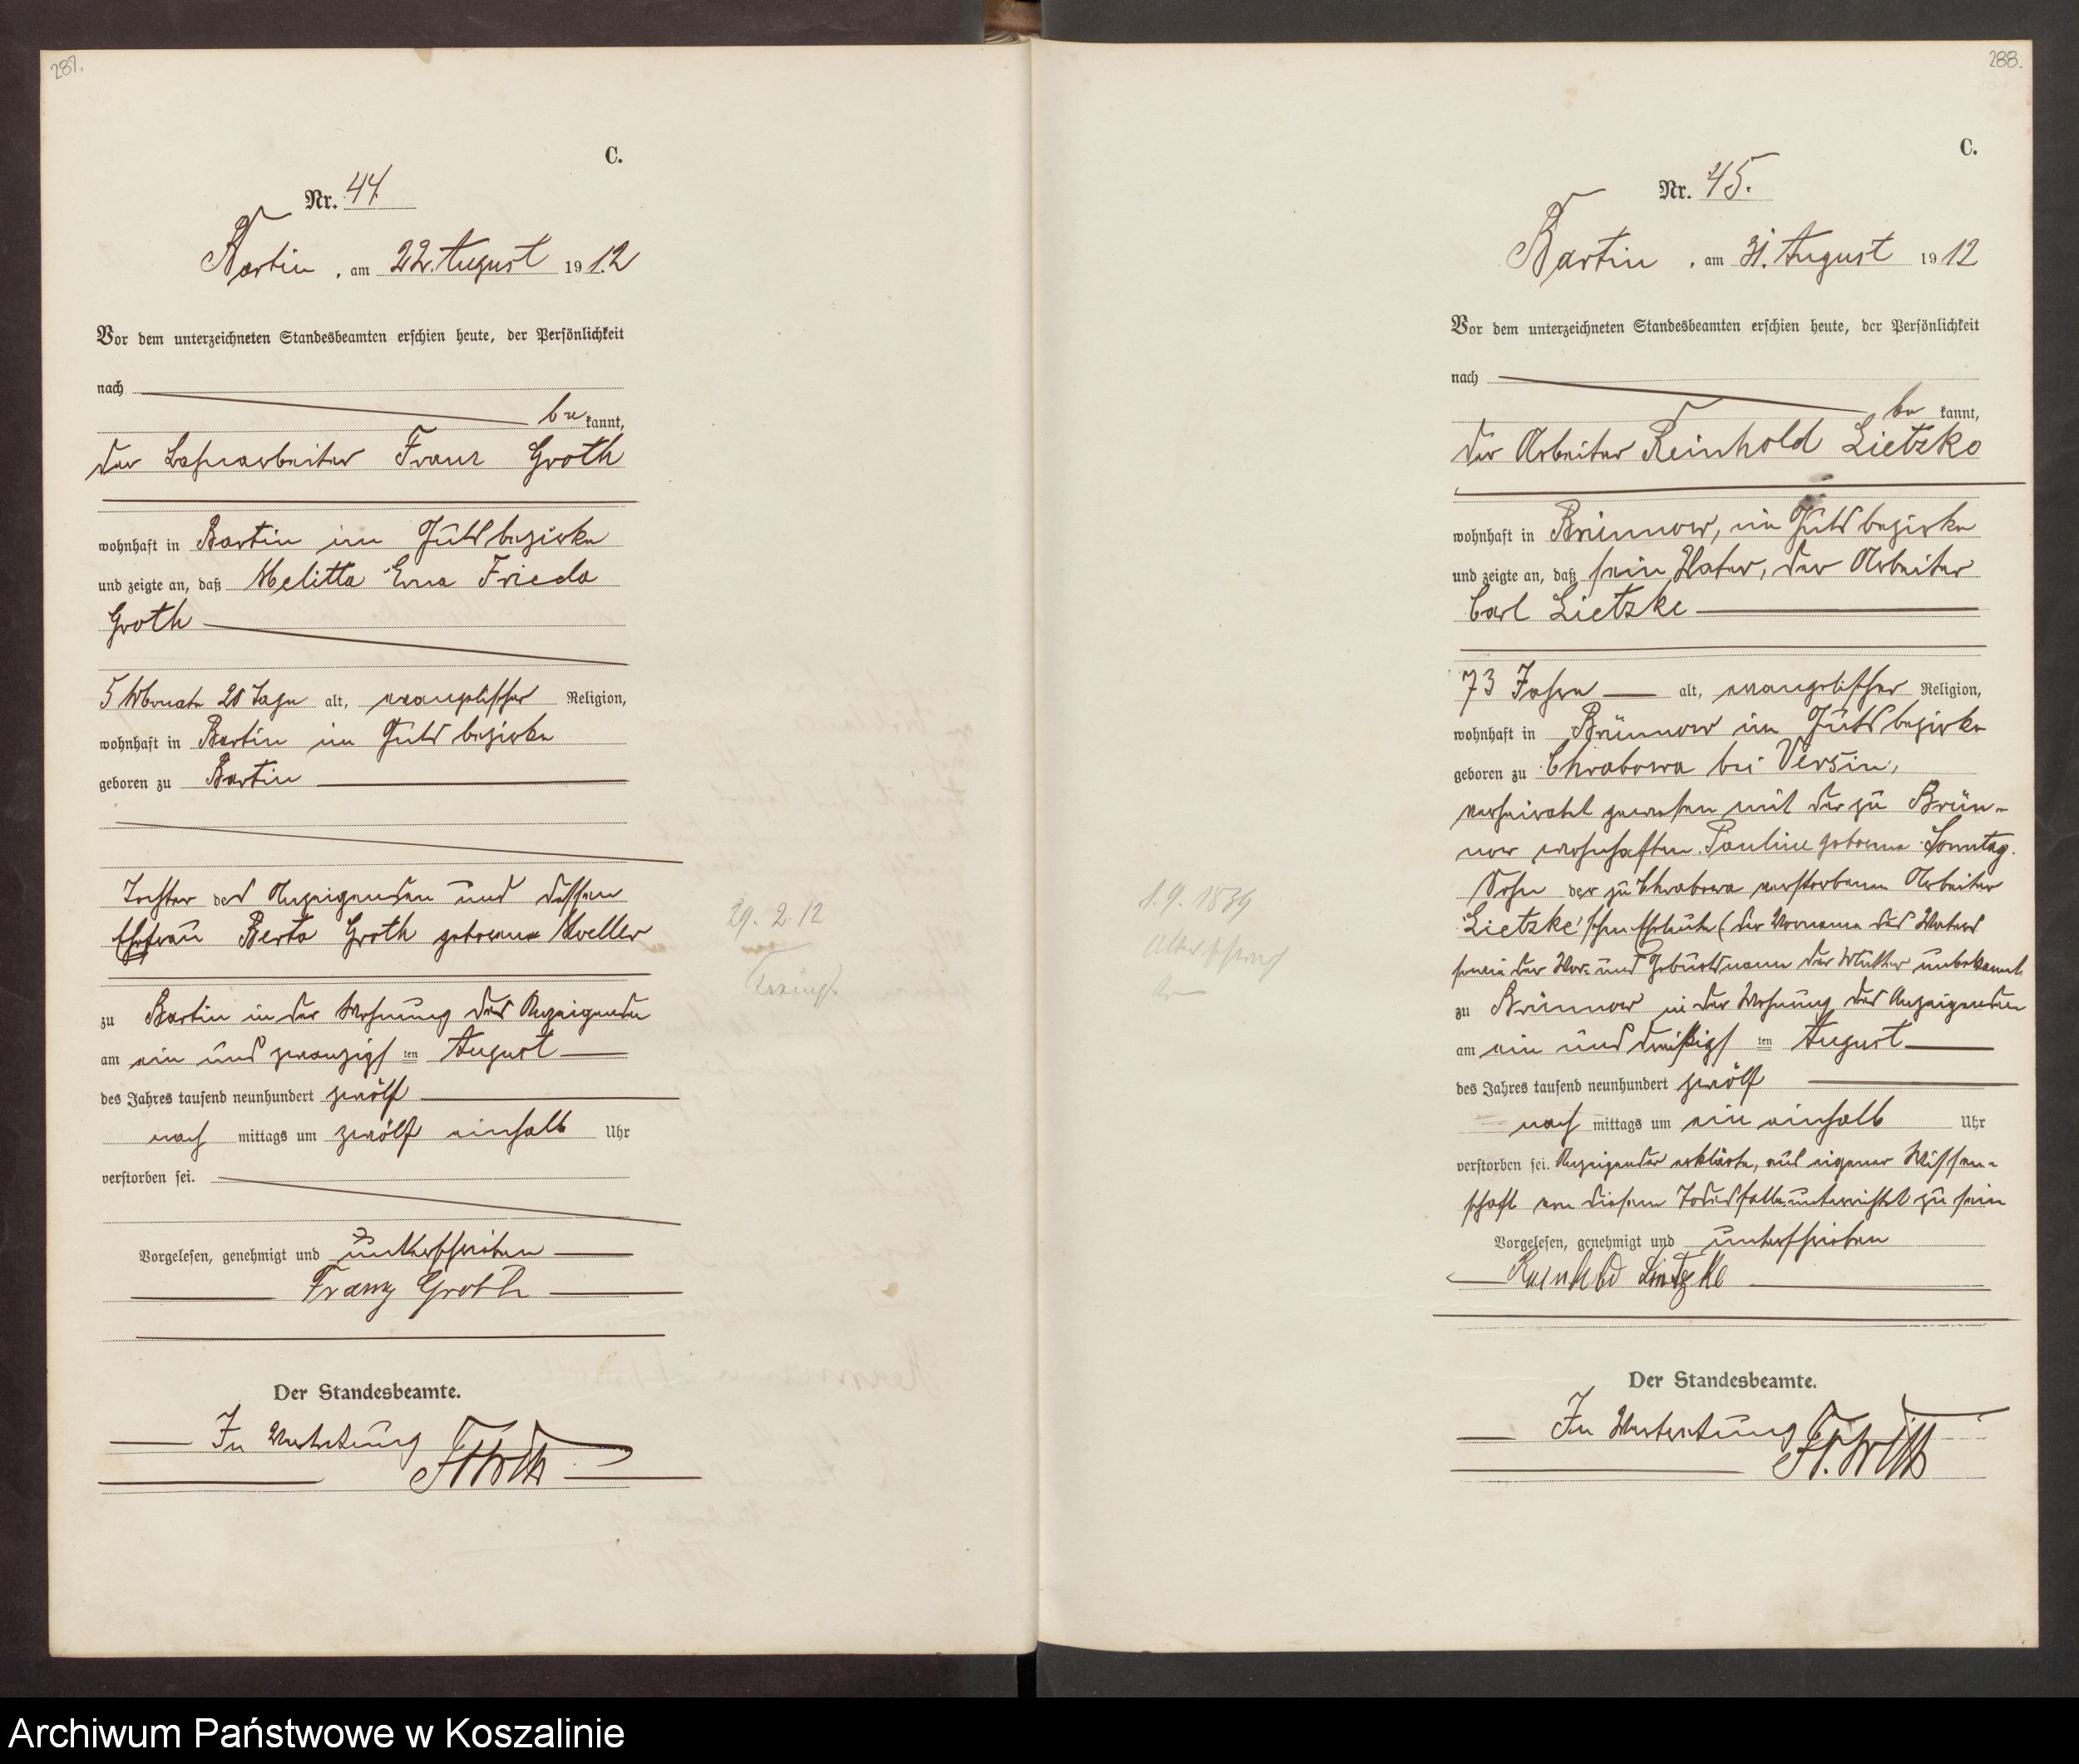 287.
C.
Nr. 44.
Bartin, am 22. August 1912
Vor dem unterzeichneten Standesbeamten erschien heute, der Persönlichkeit
nach
be kannt,
der Bahnarbeiter Franz Groth
wohnhaft in Bartin im Gutsbezirke
und zeigte an, daß Melitta Erna Frieda
Groth
5 Monate 20 Tage alt, evangelischer Religion,
wohnhaft in Bartin im Gutsbezirke
geboren zu Bartin
Tochter des Anzeigenden und dessen
Ehefrau Berta Groth geborene Moeller
29. 2. 12
zu Bartin in der Wohnung des Anzeigenden
am ein und zwanzigs ten August
des Jahres tausend neunhundert zwölf
nach mittags um zwölf einhalb Uhr
verstorben sei.
Vorgelesen, genehmigt und unterschrieben
Franz Groth
Der Standesbeamte.
In Vertretung
288.
C.
Nr. 45.
Bartin, am 31. August 1912
Vor dem unterzeichneten Standesbeamten erschien heute, der Persönlichkeit
nach
be kannt,
der Arbeiter Reinhold Lietzke
wohnhaft in Brünnow, im Gutsbezirke
und zeigte an, daß sein Vater, der Arbeiter
Carl Lietzke
73 Jahre alt, evangelischer Religion,
wohnhaft in Brünnow im Gutsbezirke
geboren zu Chrabowa bei Versin,
verheiratet gewesen mit der zu Brün-
now wohnhaften Pauline geborene Sonntag.
Sohn der zu Chrabowa verstorbenen Arbeiter
Lietzke'schen Eheleute (der Vorname des Vaters
sowie der Vor- und Geburtsname der Mutter unbekannt
1. 9. 1839
Altersschwäche
zu Brünnow in der Wohnung des Anzeigenden
am ein und dreißigs ten August
des Jahres tausend neunhundert zwölf
nach mittags um ein einhalb Uhr
verstorben sei. Anzeigender erklärte, aus eigener Wissen-
schaft von diesem Todesfalle unterrichtet zu sein
Vorgelesen, genehmigt und unterschrieben
Reinhold Lietzke
Der Standesbeamte.
In Vertretung
Archiwum Państwowe w Koszalinie